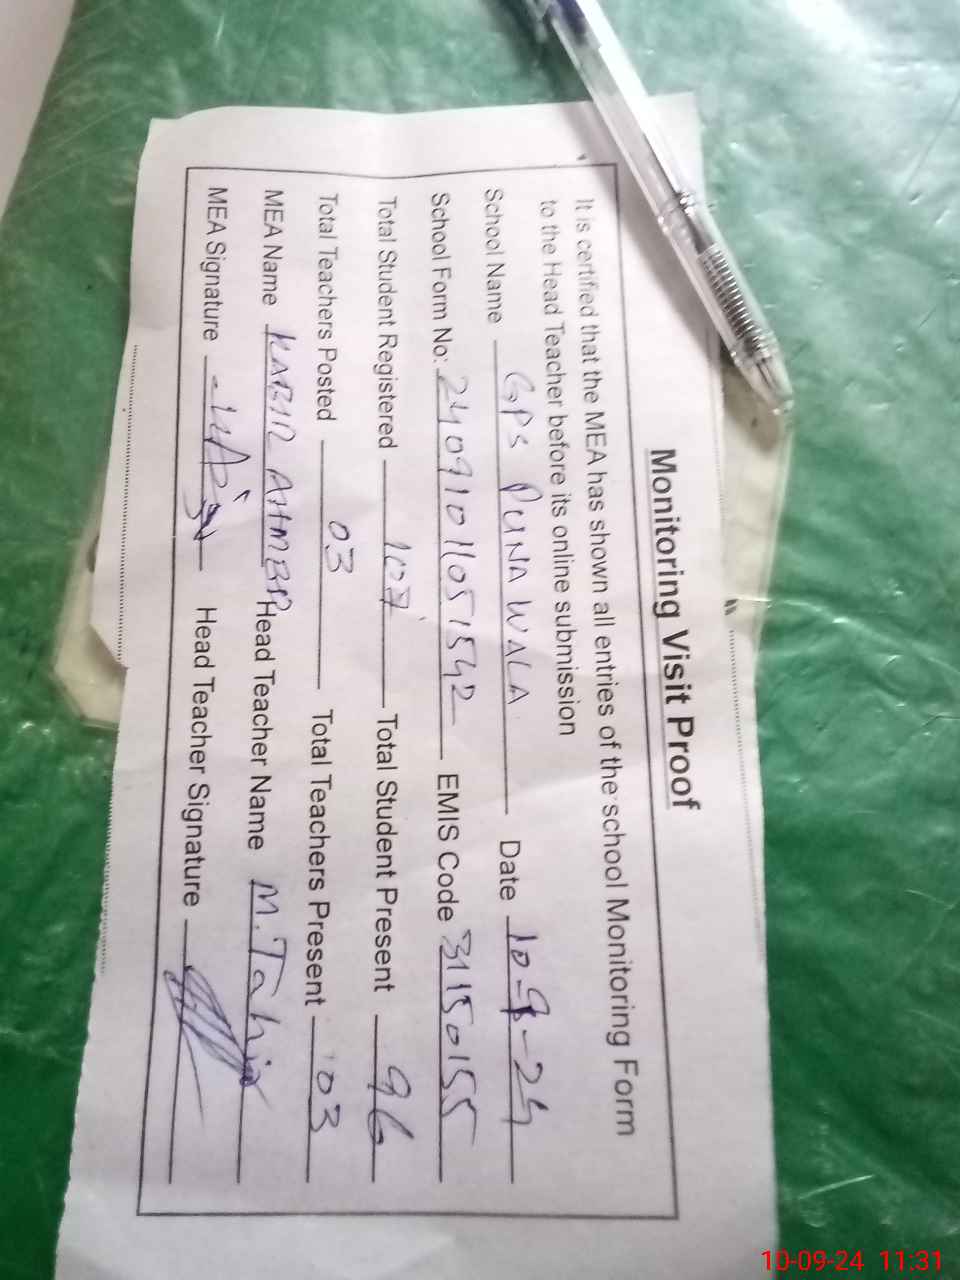 Monitoring Visit Proof
It is certified that the MEA has shown all entries of the school Monitoring Form
to the Head Teacher before its online submission
School Name GPS PUNA WALA Date 10-9-24
School Form No: 24091011051542 EMIS Code 31150155
Total Student Registered 107 Total Student Present 96
Total Teachers Posted 03 Total Teachers Present 03
MEA Name KABIR AHMED Head Teacher Name M. Tahir
MEA Signature Head Teacher Signature
10-09-24 11:31